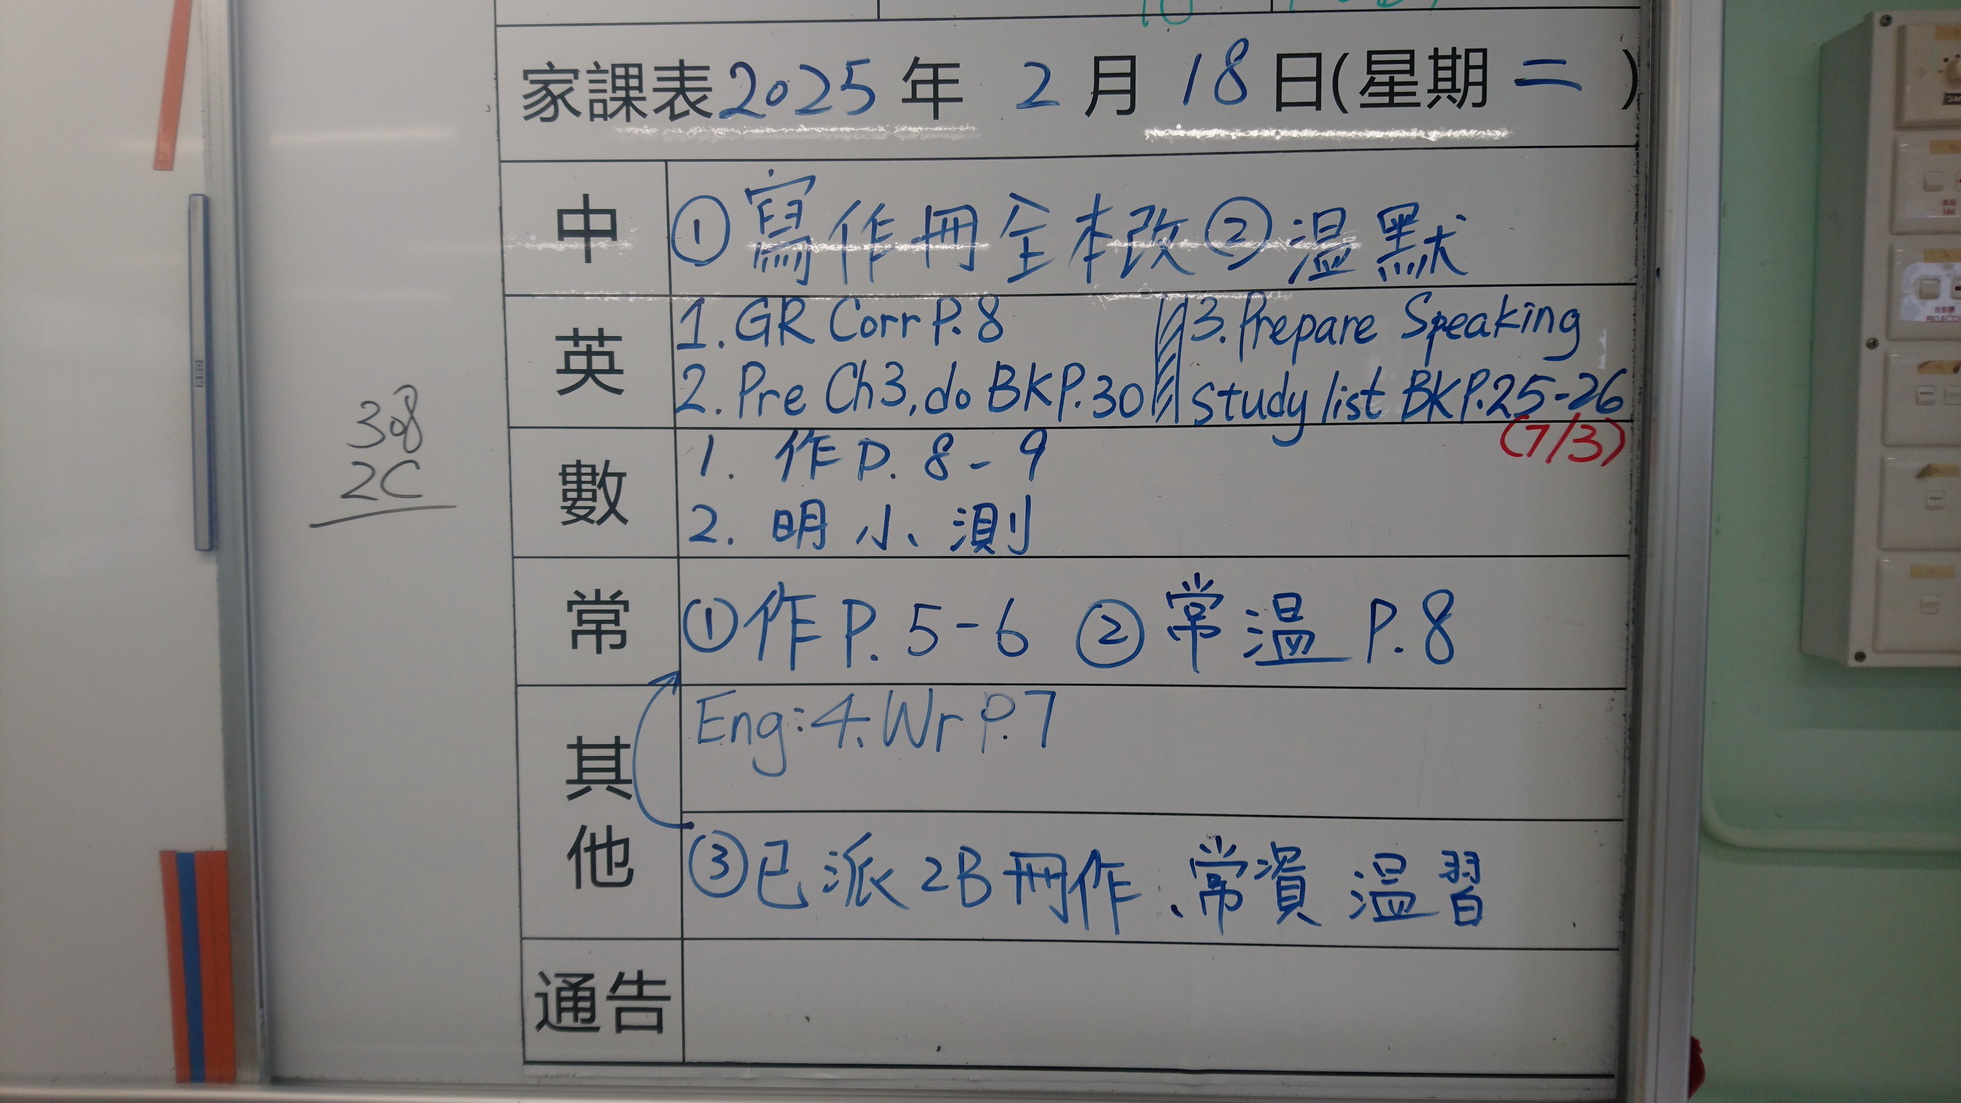 家課表2025年 2月 18日(星期二)
中 ①寫作冊全本改②溫默
英 1. GR Corr P. 8
2. Pre Ch3, do BK P. 30
3. Prepare Speaking
study list BK P. 25-26
(7/3)
數 1. 作 P. 8-9
2. 明小測
常 ①作 P. 5-6 ②常溫 P. 8
其他 Eng: 4. Wr P. 7
③已派2B冊作、常資 溫習
通告
308
2C
FAN
PROJECTOR